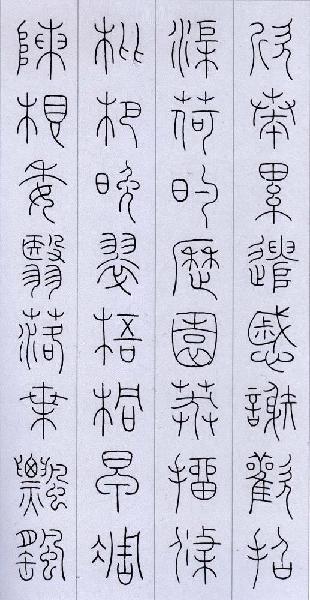 欣奏累遣慼謝歡招
渠荷的歷園莽抽條
枇杷晚翠梧桐早凋
陳根委翳落葉飄颻